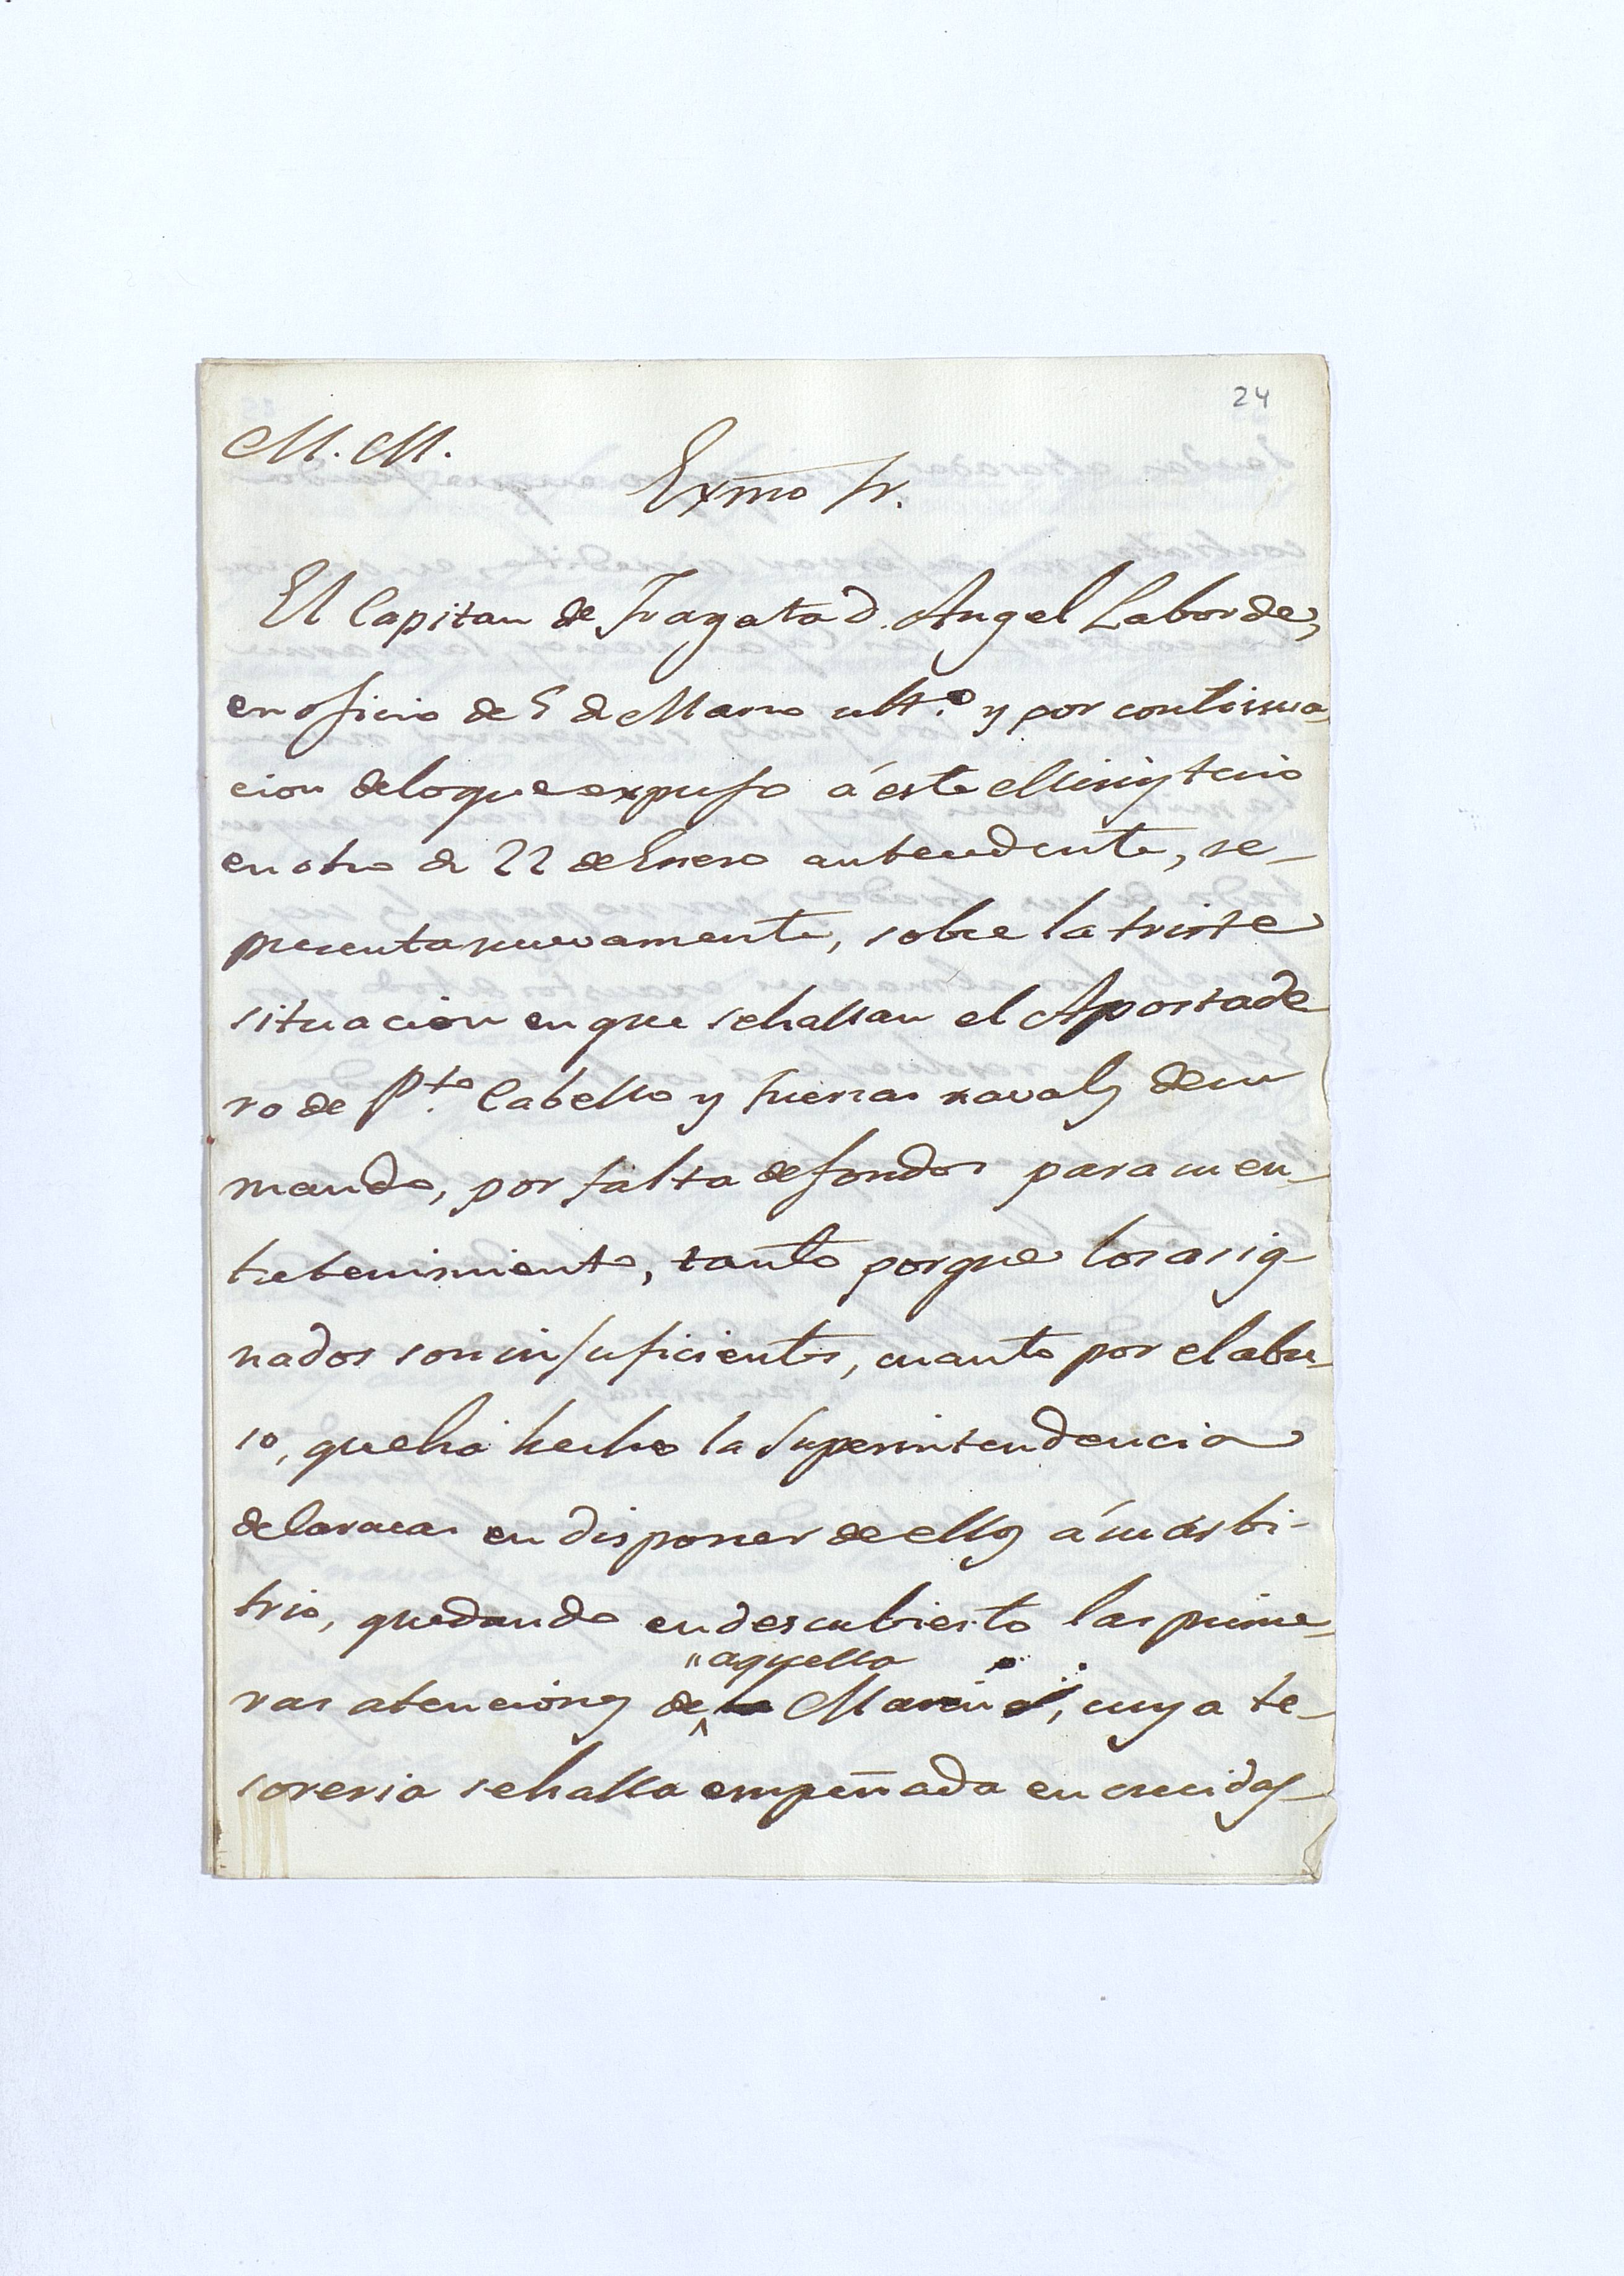 24
M. M.
Exmo Sr.
El Capitan de Fragata D. Angel Laborde,
en oficio de 5 de Marzo ult.º y por continua
cion de lo que expuso á este Ministerio
en otro de 22 de Enero antecedente, re-
presenta nuevamente, sobre la triste
situacion en que se hallan el Apostade
ro de Pto. Cabello y fuerzas navales de su
mando, por falta de fondos para su en-
tretenimiento, tanto porque los asig-
nados son insuficientes, cuanto por el abu-
so, que ha hecho la Superintendencia
de Caracas en disponer de ellos á su arbi-
trio, quedando en descubierto las prime-
"aquella
ras atenciones de la Marina, cuya te-
soreria se halla empeñada en crecidas